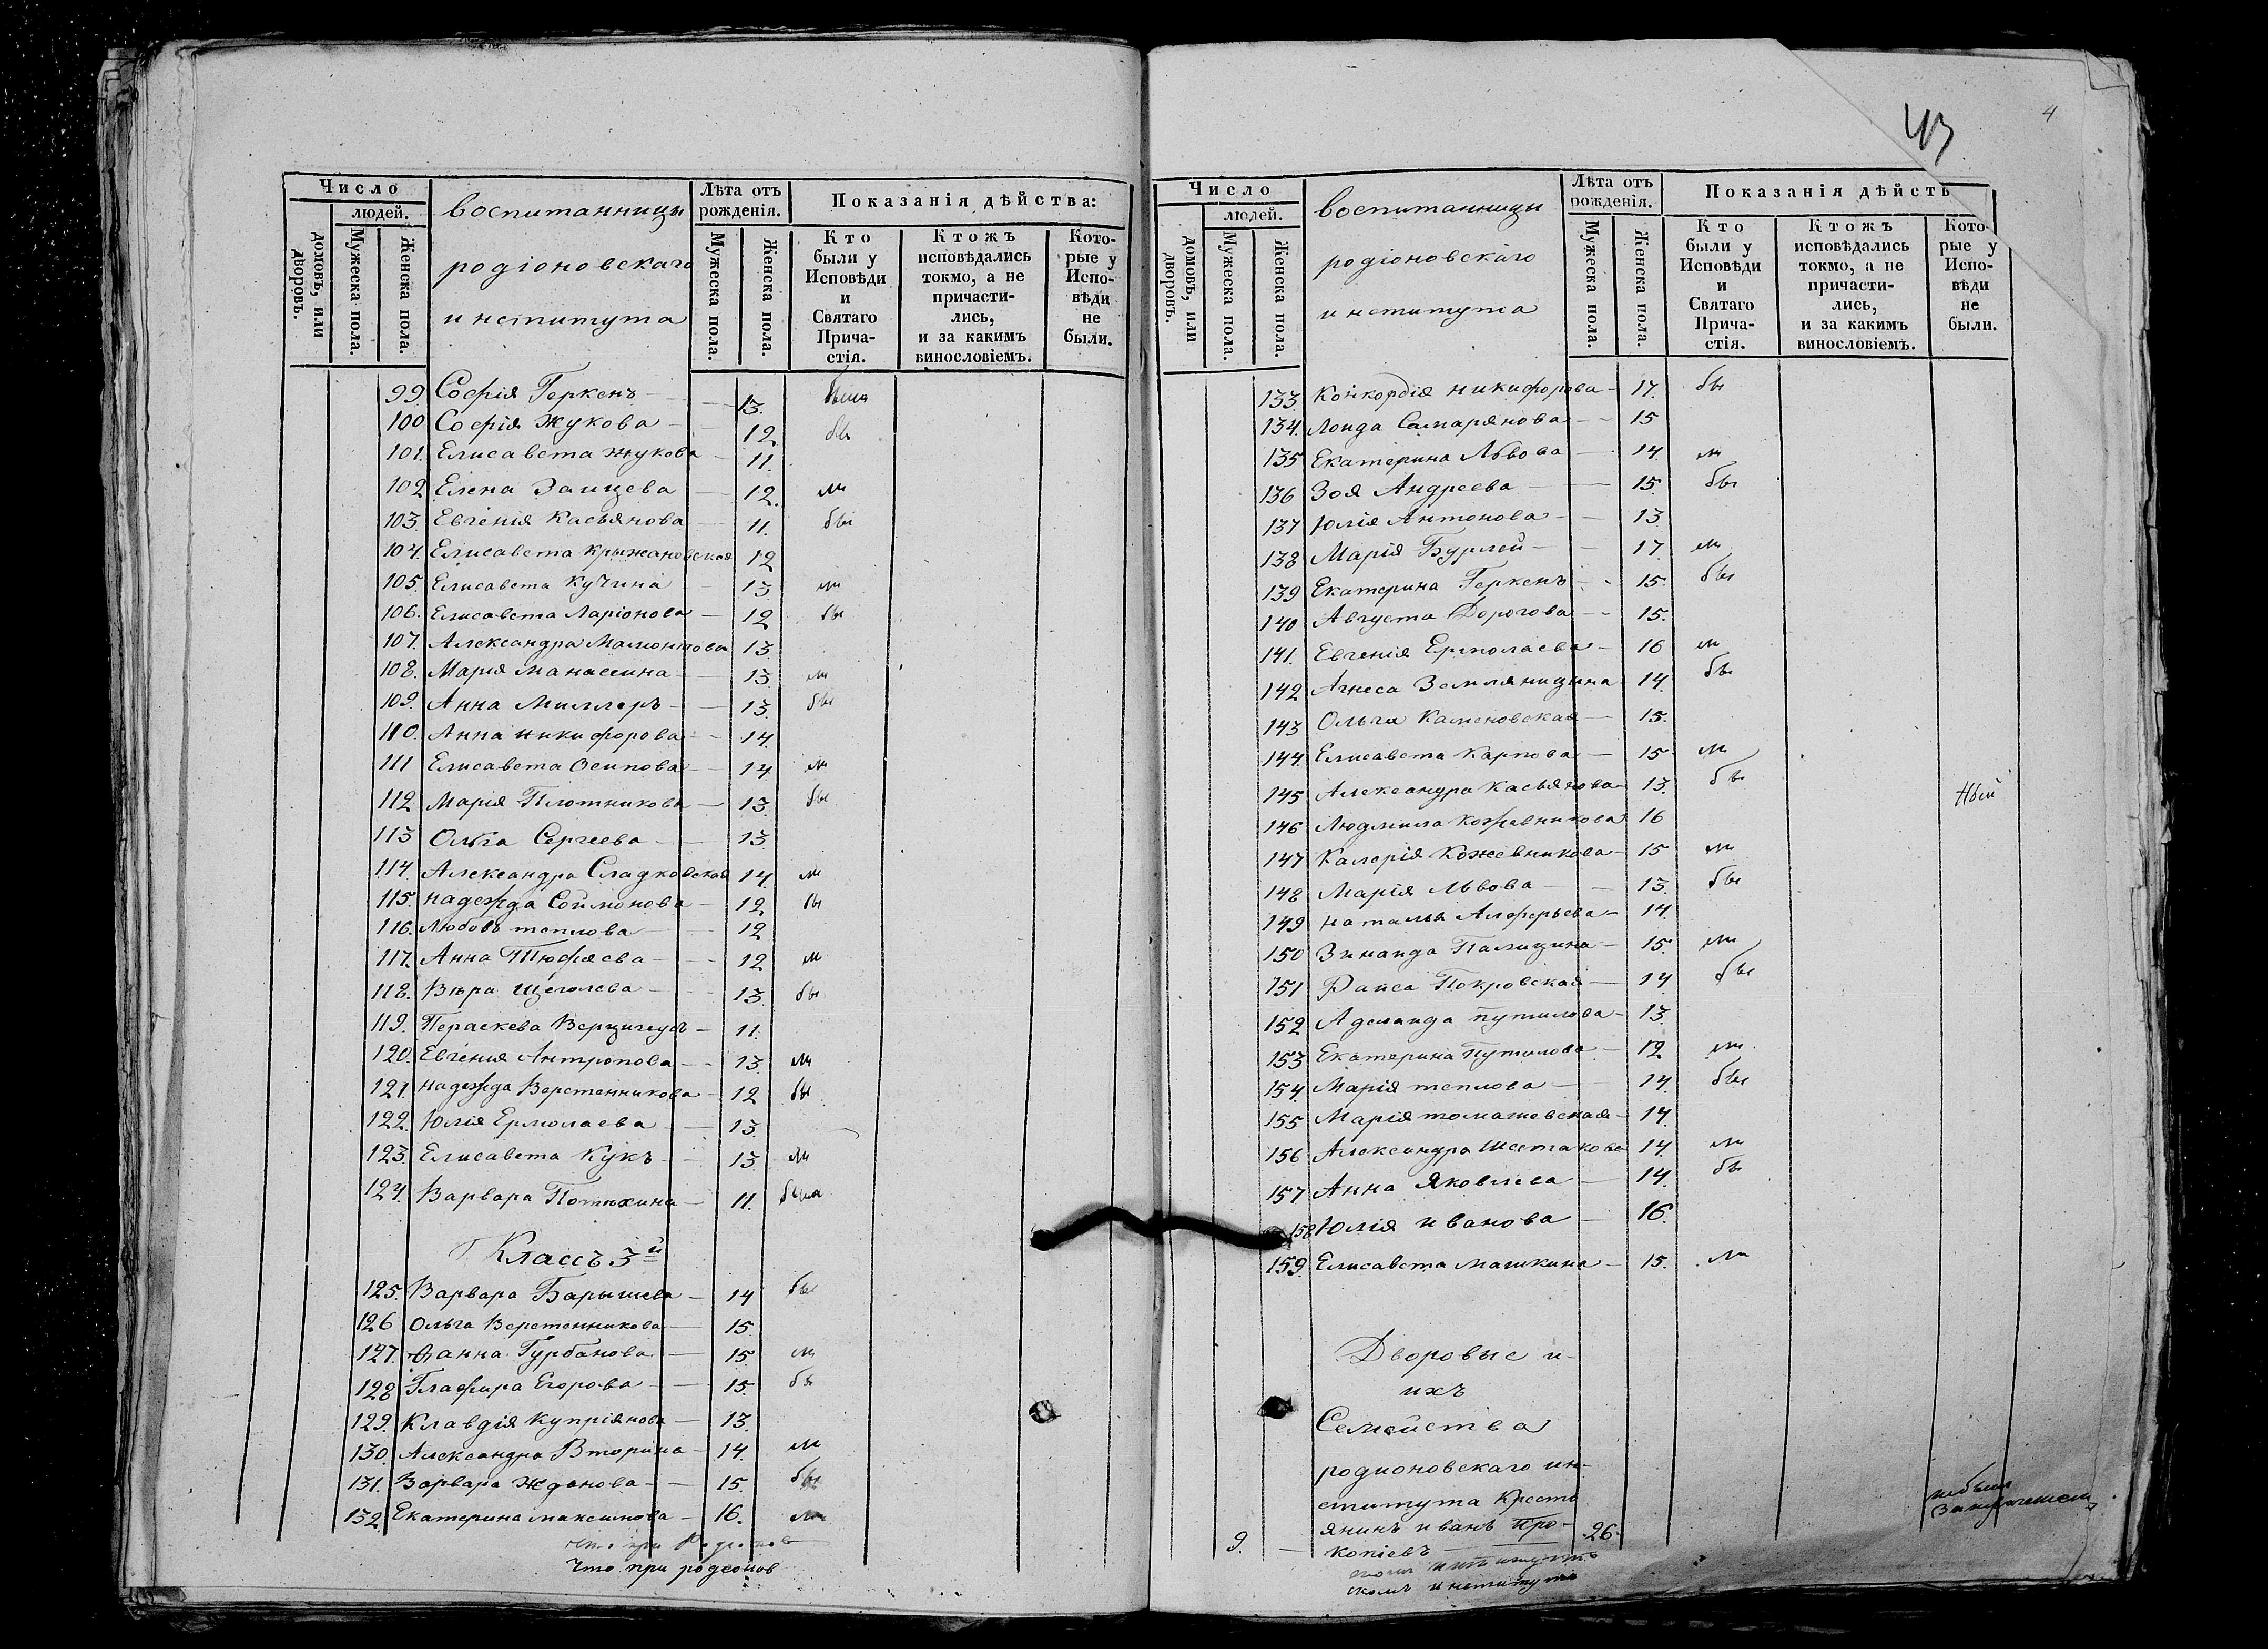 Число
людей.
домовъ, или дворовъ.
Мужеска пола.
Женска пола.
воспитанницы
родіоновскаго
института
Лѣта отъ рожденія.
Мужеска пола.
Женска пола.
Показанія дѣйства:
Кто были у Исповѣди и Святаго Прича-стія.
Ктожъ исповѣдались токмо, а не причасти-лись, и за какимъ винословіемъ.
Кото-рые у Испо-вѣди не были.
99. Софія Геркенъ 13. была
100 Софія Жукова 12 бы
101. Елисавета Жукова 11.
102 Елена Заицева 12. ли
103. Евгенія Касьянова 11. бы
104. Елисавета Крыжановская 12
105. Елисавета Кучина 13 ли
106. Елисавета Ларіонова 12 бы
107. Александра Мамонтова 13
108. Марія Манасеина 13. ли
109. Анна Миллеръ 13. бы
110. Анна Никифорова 14.
111 Елисавета Осипова 14 ли
112 Марія Плотникова 13. бы
113 Ольга Сергеева 13.
114. Александра Сладковская 14. ли
115. Надежда Соймонова 12. бы
116. Любовь теплова 12
117. Анна Тюфяева 12 ли
118. Вѣра Щеголева 13. бы
119. Пераскева 11.
120. Евгенія Антропова 13. ли
121. Надежда Веретенникова 12 бы
122. Юлія Ермолаева 13.
123. Елисавета Кукъ 13 ли
124. Варвара Потѣхина 11. была
Классъ 3й
125. Варвара Барышева 14 бы
126 Ольга Веретенникова 15.
127. Анна Гурбанова 15. ли
128 Глафира Егорова 15. бы
129. Клавдія Купріянова 13.
130. Александра Вторина 14. ли
131. Варвара Жданова 15. бы
132. Екатерина Максимова 16. ли
Что при родіонов
43
4
Число
людей.
домовъ, или дворовъ.
Мужеска пола.
Женска пола.
воспитанницы
родіоновскаго
института
Лѣта отъ рожденія.
Мужеска пола.
Женска пола.
Показанія дѣйств
Кто были у Исповѣди и Святаго Прича-стія.
Ктожъ исповѣдались токмо, а не причасти-лись, и за какимъ винословіемъ.
Кото-рые у Испо-вѣди не были.
133. Конкордія Никифорова 17. бы
134. Лоида Самарянова 15
135 Екатерина Львова 14. ли
136 Зоя Андреева 15. бы
137 Юлія Антонова 13
138 Марія Бурлей 17. ли
139 Екатерина Геркенъ 15. бы
140 Августа Дорогова 15.
141. Евгенія Ермолаева 16 ли
142 Агнеса Земляницына 14. бы
143 Ольга Каменовская 15.
144 Елисавета Карпова 15 ли
145 Александра Касьянова 13. бы
146 Людмила Кожевникова 16
147 Калерія Кожевникова 15 ли
148 Марія Львова 13. бы
149 Наталья Алферьева 14.
150 Зинаида Палицина 15. ли
151 Раиса Покровская 14 бы
152 Аделаида Путилова 13.
153 Екатерина Путилова 12 ли
154 Марія теплова 14. бы
155 Марія томашевская 14.
156 Александра Шестакова 14. ли
157 Анна Яковлева 14. бы
158 Юлія иванова 16.
159. Елисавета Машкина 15. ли
Дворовые и
ихъ
Семейства
родионовскаго ин-
ститута Кресть
янинъ иванъ Про-
9. копіевъ 26.
скомъ институте